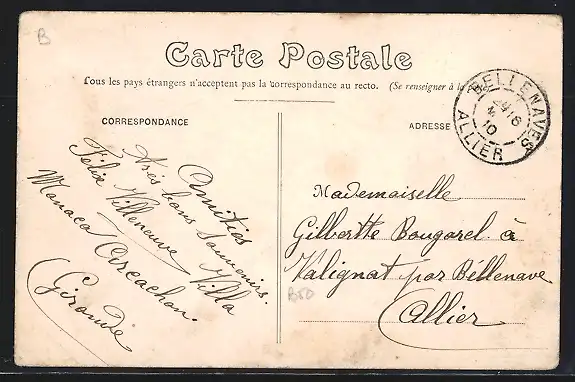 B
Carte Postale
Tous les pays étrangers n'acceptent pas la correspondance au recto. (Se renseigner à la
CORRESPONDANCE
ADRESSE
BELLENAVES
16
10
ALLIER
Amitiés
très bons souvenirs.
Félix Villeneuve Villa
Monaco Arcachon.
(Gironde
Mademoiselle
Gilberte Bougarel à
Valignat par Béllenave
(Allier